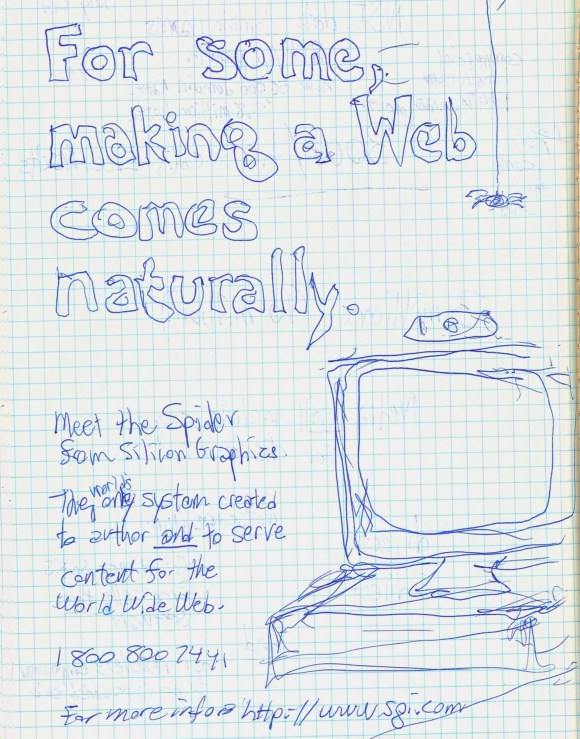 For some,
making a Web
comes
naturally.
Meet the Spider
from Silicon Graphics.
The world's only system created
to author and to serve
content for the
World Wide Web.
1 800 800 7441
For more info: http://www.sgi.com